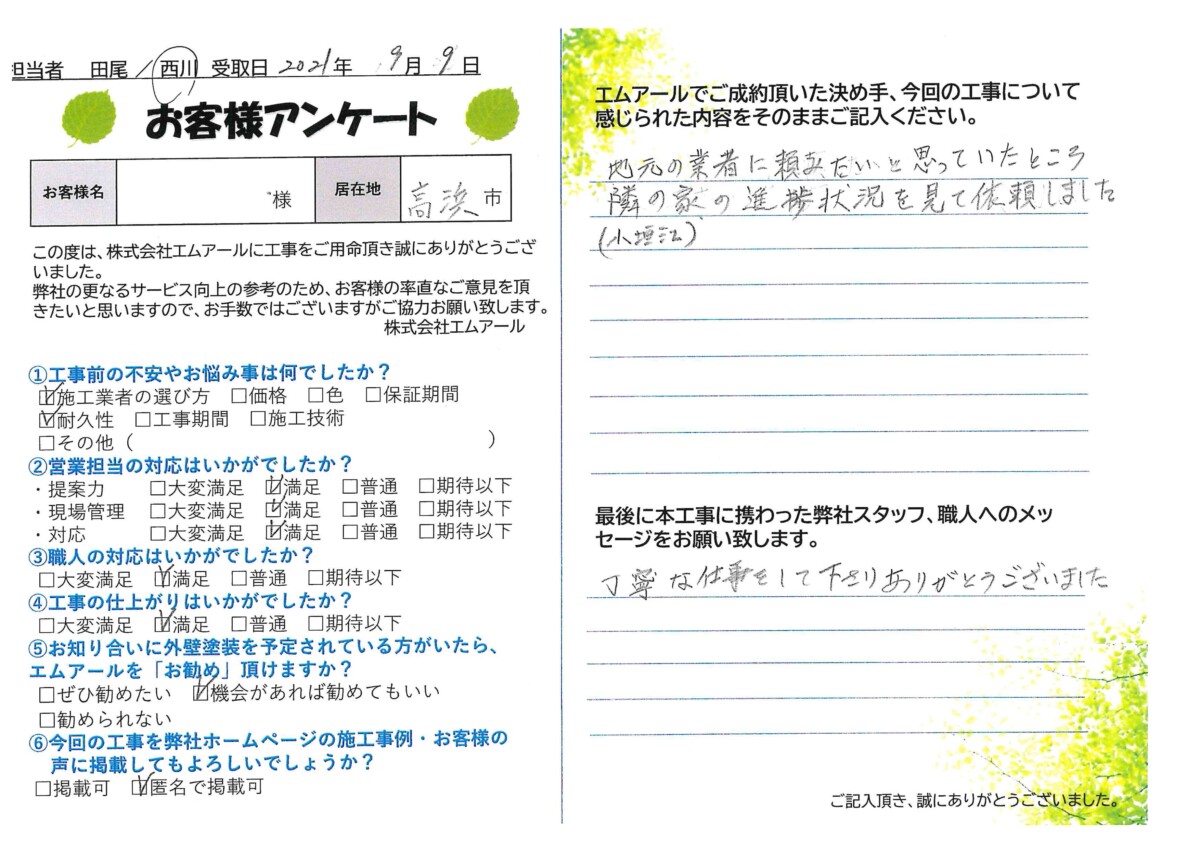 担当者 田尾／西川 受取日 2021年 9月 9日
お客様アンケート
お客様名 様 居在地 高浜市
この度は、株式会社エムアールに工事をご用命頂き誠にありがとうござ
いました。
弊社の更なるサービス向上の参考のため、お客様の率直なご意見を頂
きたいと思いますので、お手数ではございますがご協力お願い致します。
株式会社エムアール
①工事前の不安やお悩み事は何でしたか？
☑施工業者の選び方 □価格 □色 □保証期間
☑耐久性 □工事期間 □施工技術
□その他（ ）
②営業担当の対応はいかがでしたか？
・提案力 □大変満足 ☑満足 □普通 □期待以下
・現場管理 □大変満足 ☑満足 □普通 □期待以下
・対応 □大変満足 ☑満足 □普通 □期待以下
③職人の対応はいかがでしたか？
□大変満足 ☑満足 □普通 □期待以下
④工事の仕上がりはいかがでしたか？
□大変満足 ☑満足 □普通 □期待以下
⑤お知り合いに外壁塗装を予定されている方がいたら、
エムアールを「お勧め」頂けますか？
□ぜひ勧めたい ☑機会があれば勧めてもいい
□勧められない
⑥今回の工事を弊社ホームページの施工事例・お客様の
声に掲載してもよろしいでしょうか？
□掲載可 ☑匿名で掲載可
エムアールでご成約頂いた決め手、今回の工事について
感じられた内容をそのままご記入ください。
地元の業者に頼みたいと思っていたところ
隣の家の進捗状況を見て依頼しました
(小垣江)
最後に本工事に携わった弊社スタッフ、職人へのメッ
セージをお願い致します。
丁寧な仕事をして下さりありがとうございました
ご記入頂き、誠にありがとうございました。